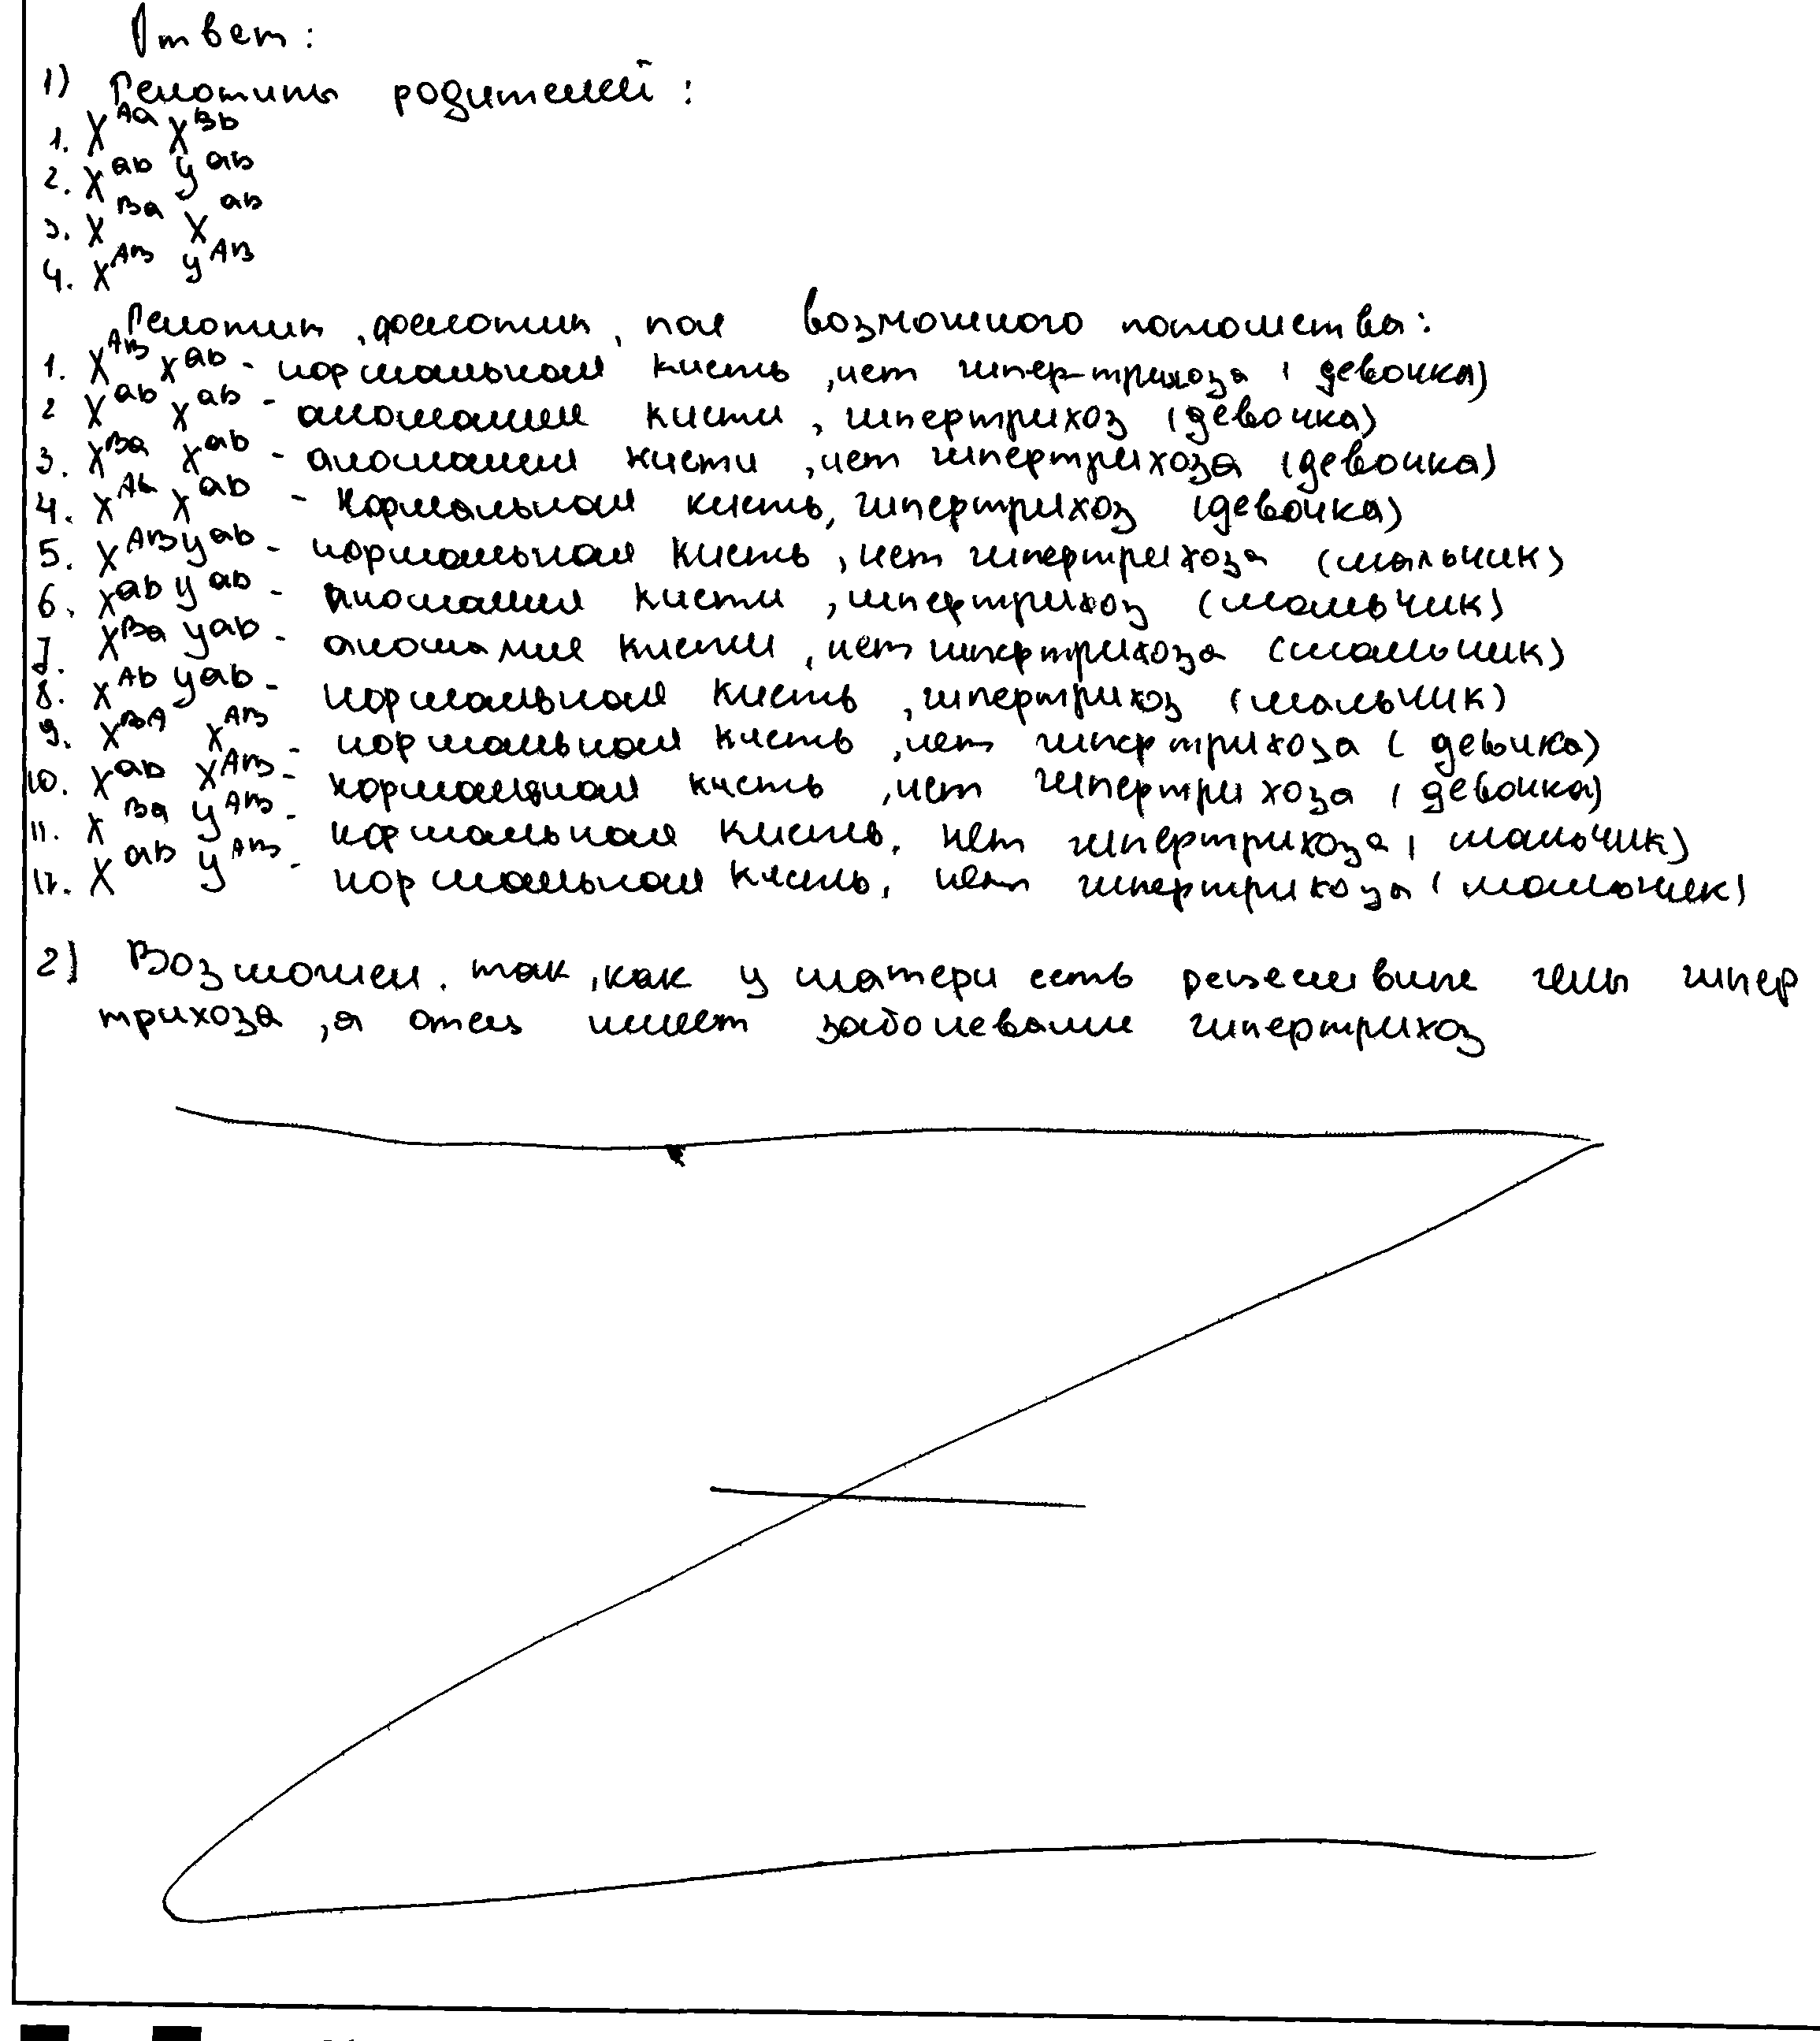 Ответ:
1) Генотипы родителей:
1. X^Aa X^Bb
2. X^ab y^ab
3. X^Ba X^ab
4. X^AB y^AB
Генотип, фенотип, пол возможного потомства:
1. X^AB X^ab - нормальная кисть, нет гипертрихоза (девочка)
2 X^ab X^ab - аномалия кисти, гипертрихоз (девочка)
3. X^Ba X^ab - аномалия кисти, нет гипертрихоза (девочка)
4. X^Ab X^ab - нормальная кисть, гипертрихоз (девочка)
5. X^AB y^ab - нормальная кисть, нет гипертрихоза (мальчик)
6. X^ab y^ab - аномалия кисти, гипертрихоз (мальчик)
7. X^Ba y^ab - аномалия кисти, нет гипертрихоза (мальчик)
8. X^Ab y^ab - нормальная кисть, гипертрихоз (мальчик)
9. X^BA X^AB - нормальная кисть, нет гипертрихоза (девчика)
10. X^ab X^AB - нормальная кисть, нет гипертрихоза (девочка)
11. X^Ba y^AB - нормальная кисть, нет гипертрихоза (мальчик)
12. X^ab y^AB - нормальная кисть, нет гипертрихоза (мальчик)
2) Возможен. так, как у матери есть гены гипер
трихоза, а отец имеет заболевание гипертрихоз